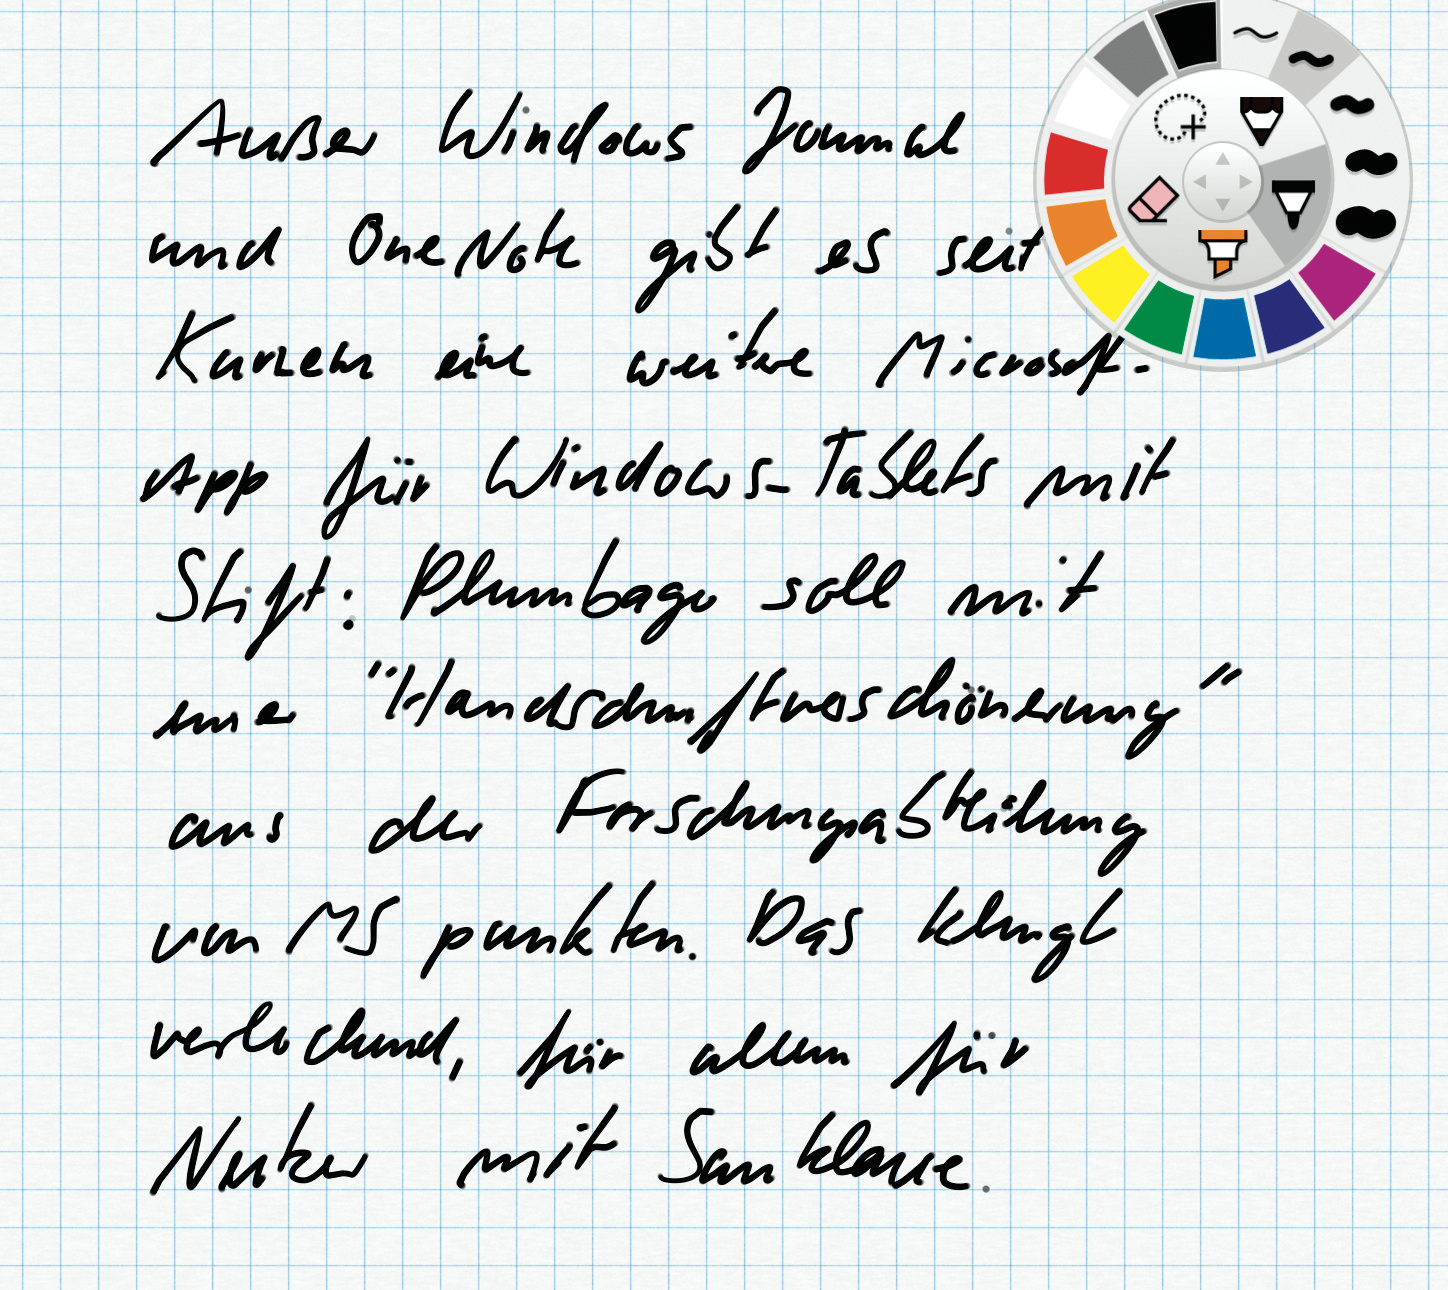 Außer Windows Journal
und OneNote gibt es seit
Kurzem eine weitere Microsoft-
App für Windows-Tablets mit
Stift: Plumbago soll mit
einer "Handschriftverschönerung"
aus der Forschungsabteilung
von MS punkten. Das klingt
verlockend, für allem für
Nutzer mit Sauklaue.